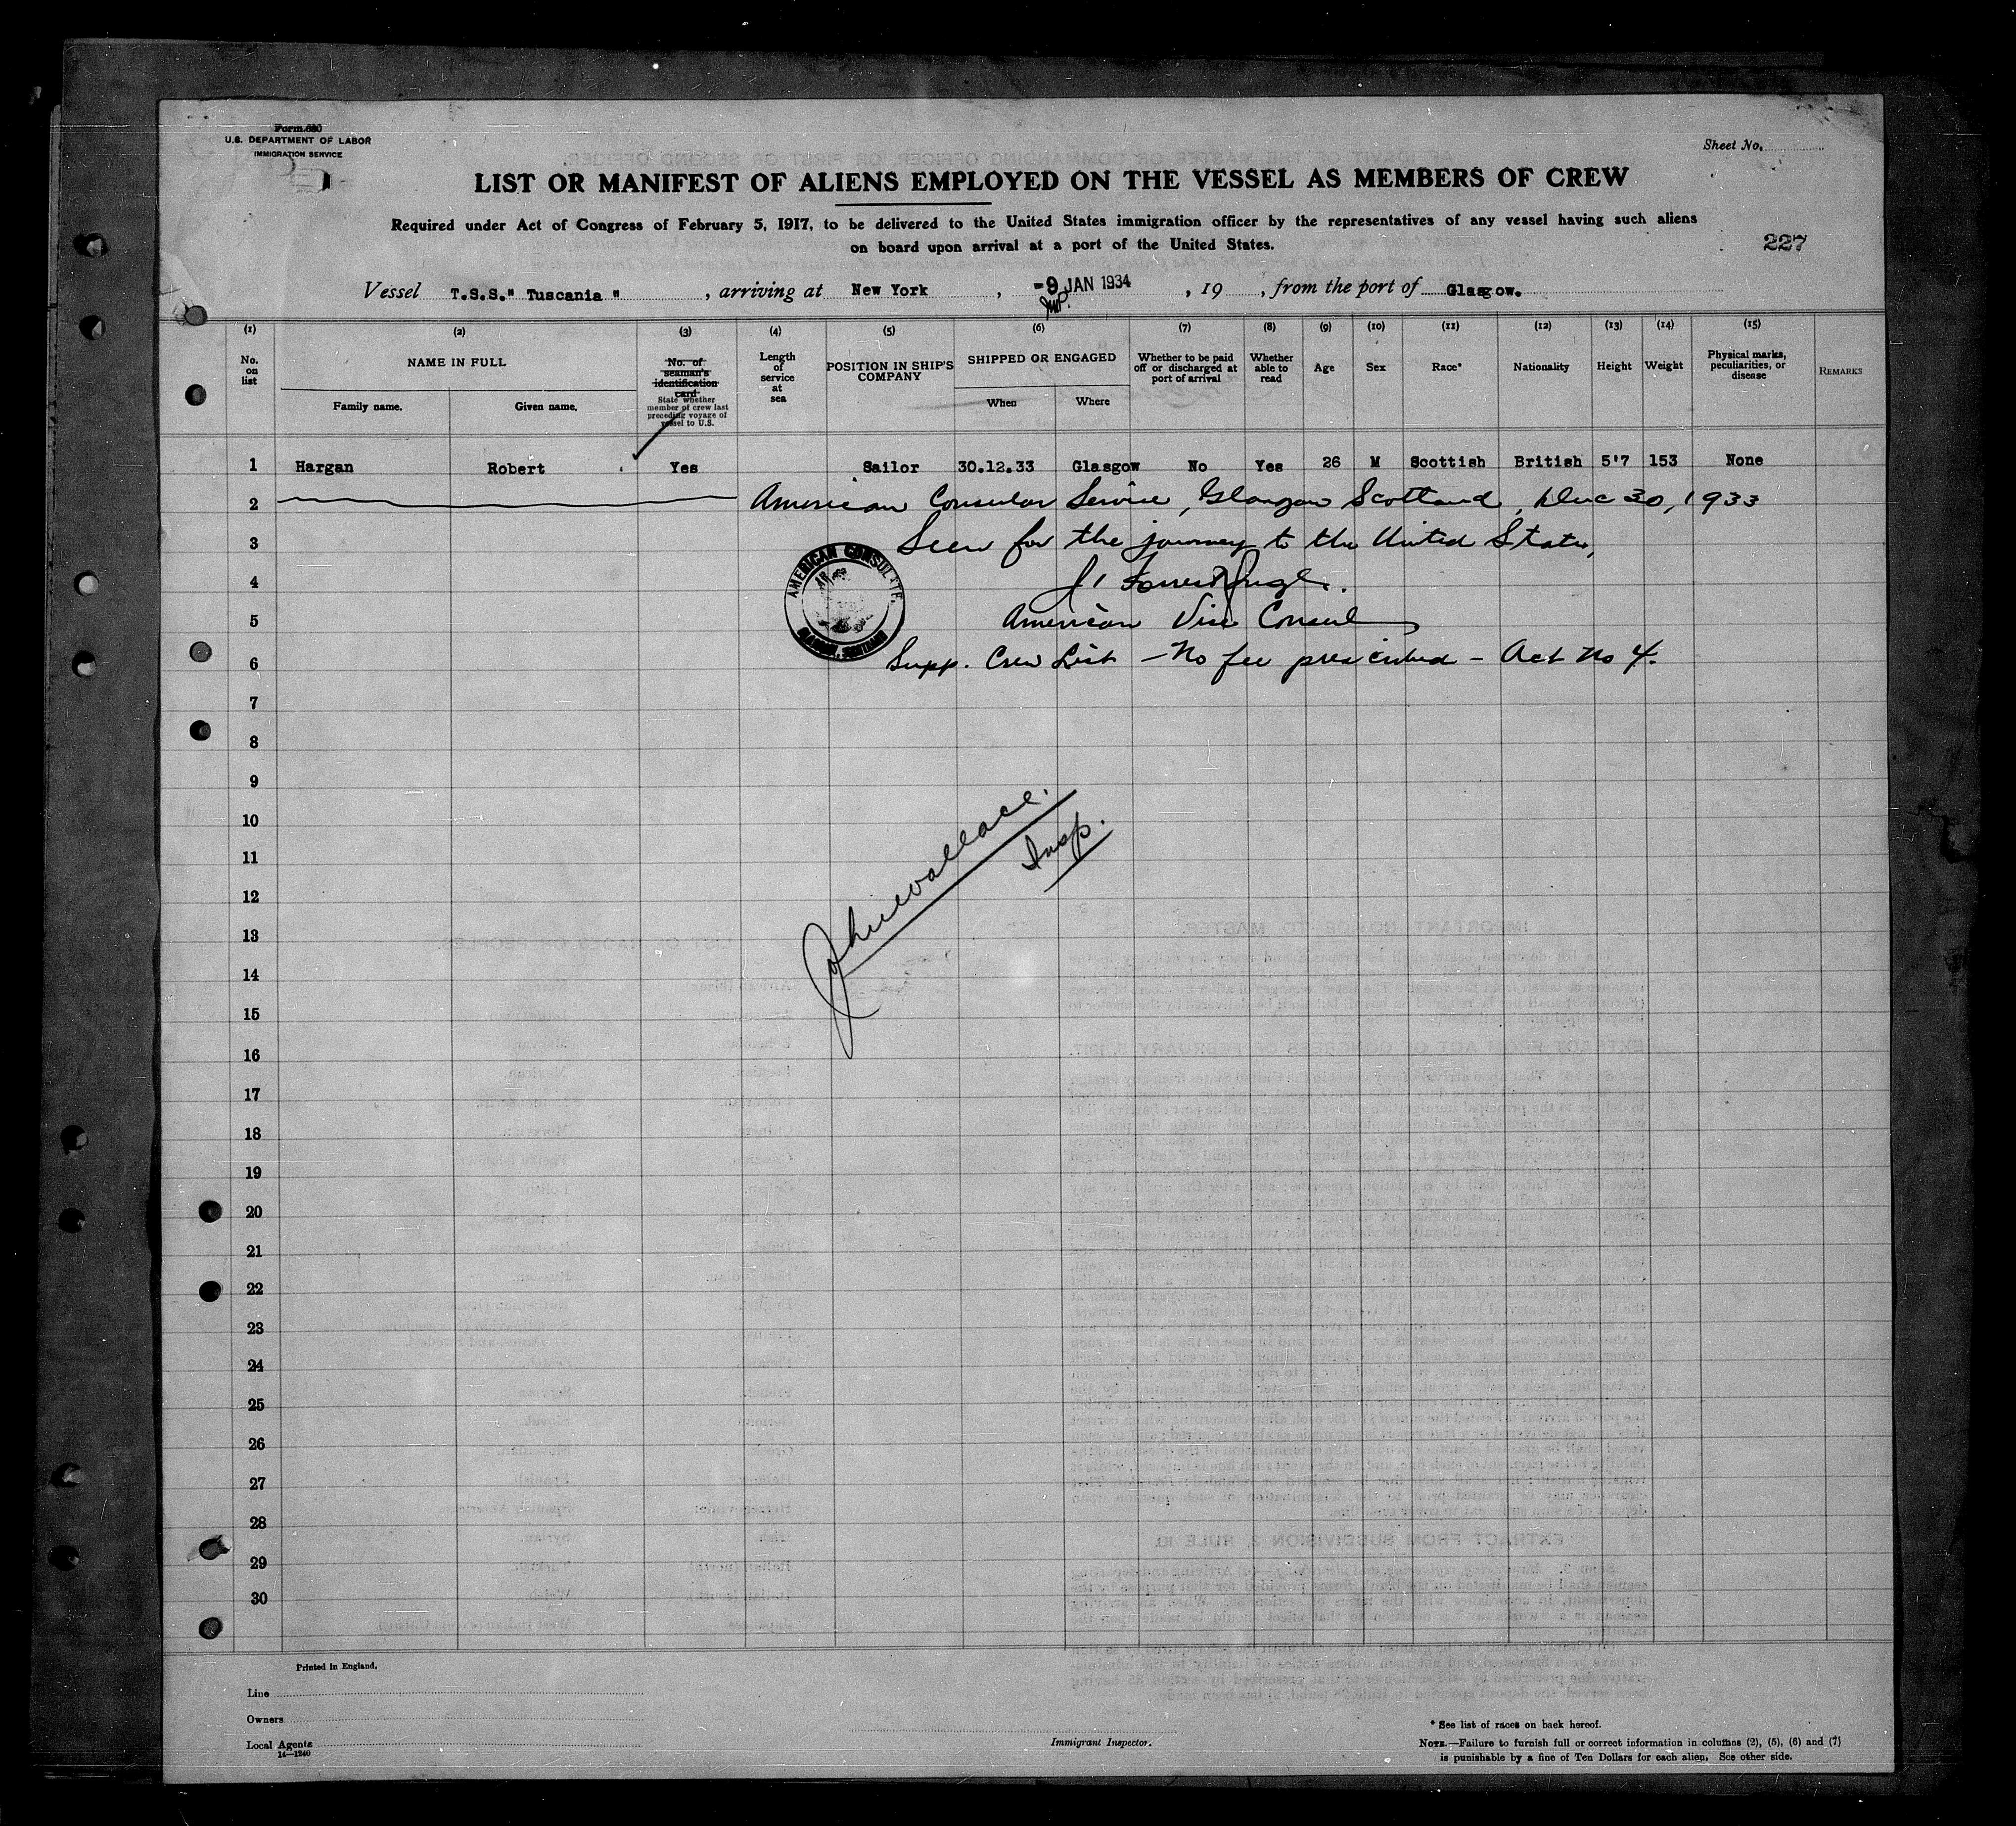 Form 680
U.S. DEPARTMENT OF LABOR
IMMIGRATION SERVICE
Sheet No.
LIST OR MANIFEST OF ALIENS EMPLOYED ON THE VESSEL AS MEMBERS OF CREW
Required under Act of Congress of February 5, 1917, to be delivered to the United States immigration officer by the representatives of any vessel having such aliens
on board upon arrival at a port of the United States.
227
Vessel T.S.S." Tuscania ", arriving at New York, -9 JAN 1934, 19, from the port of Glasgow.
(1) (2) (3) (4) (5) (6) (7) (8) (9) (10) (11) (12) (13) (14) (15)
No. on list
NAME IN FULL
Family name. Given name.
No. of seaman's identification card
State whether member of crew last preceding voyage of vessel to U.S.
Length of service at sea
POSITION IN SHIP'S COMPANY
SHIPPED OR ENGAGED
When Where
Whether to be paid off or discharged at port of arrival
Whether able to read
Age
Sex
Race*
Nationality
Height
Weight
Physical marks, peculiarities, or disease
REMARKS
1 Hargan Robert Yes Sailor 30.12.33 Glasgow No Yes 26 M Scottish British 5'7 153 None
2 American Consular Service, Glasgow Scotland, Dec 30, 1933
3 Seen for the journey to the United States,
4
AMERICAN CONSULATE
GLASGOW, SCOTLAND
5 American Vice Consul
6 Supp. Crew List - No fee prescribed - Act No 4.
7
8
9
10
11
12
John Wallace.
Insp.
13
14
15
16
17
18
19
20
21
22
23
24
25
26
27
28
29
30
Printed in England.
Line
Owners
Local Agents
14-1240
Immigrant Inspector.
* See list of races on back hereof.
NOTE.—Failure to furnish full or correct information in columns (2), (5), (6) and (7)
is punishable by a fine of Ten Dollars for each alien. See other side.